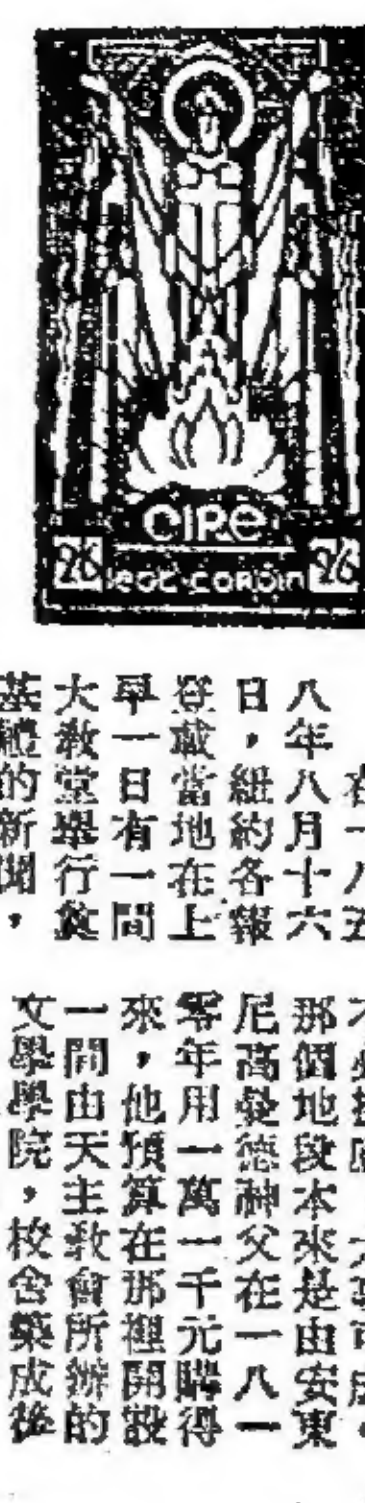 EIRE
2/6 leat-coróin 2/6
在一八五
八年八月十六
日，紐約各報
登載當地在上
早一日有一間
大教堂舉行奠
基禮的新聞，
那個地段本來是由安東
尼高曼德神父在一八一
零年用一萬一千元購得
來，他預算在那裡開設
一間由天主教會所辦的
文學學院，校舍築成後